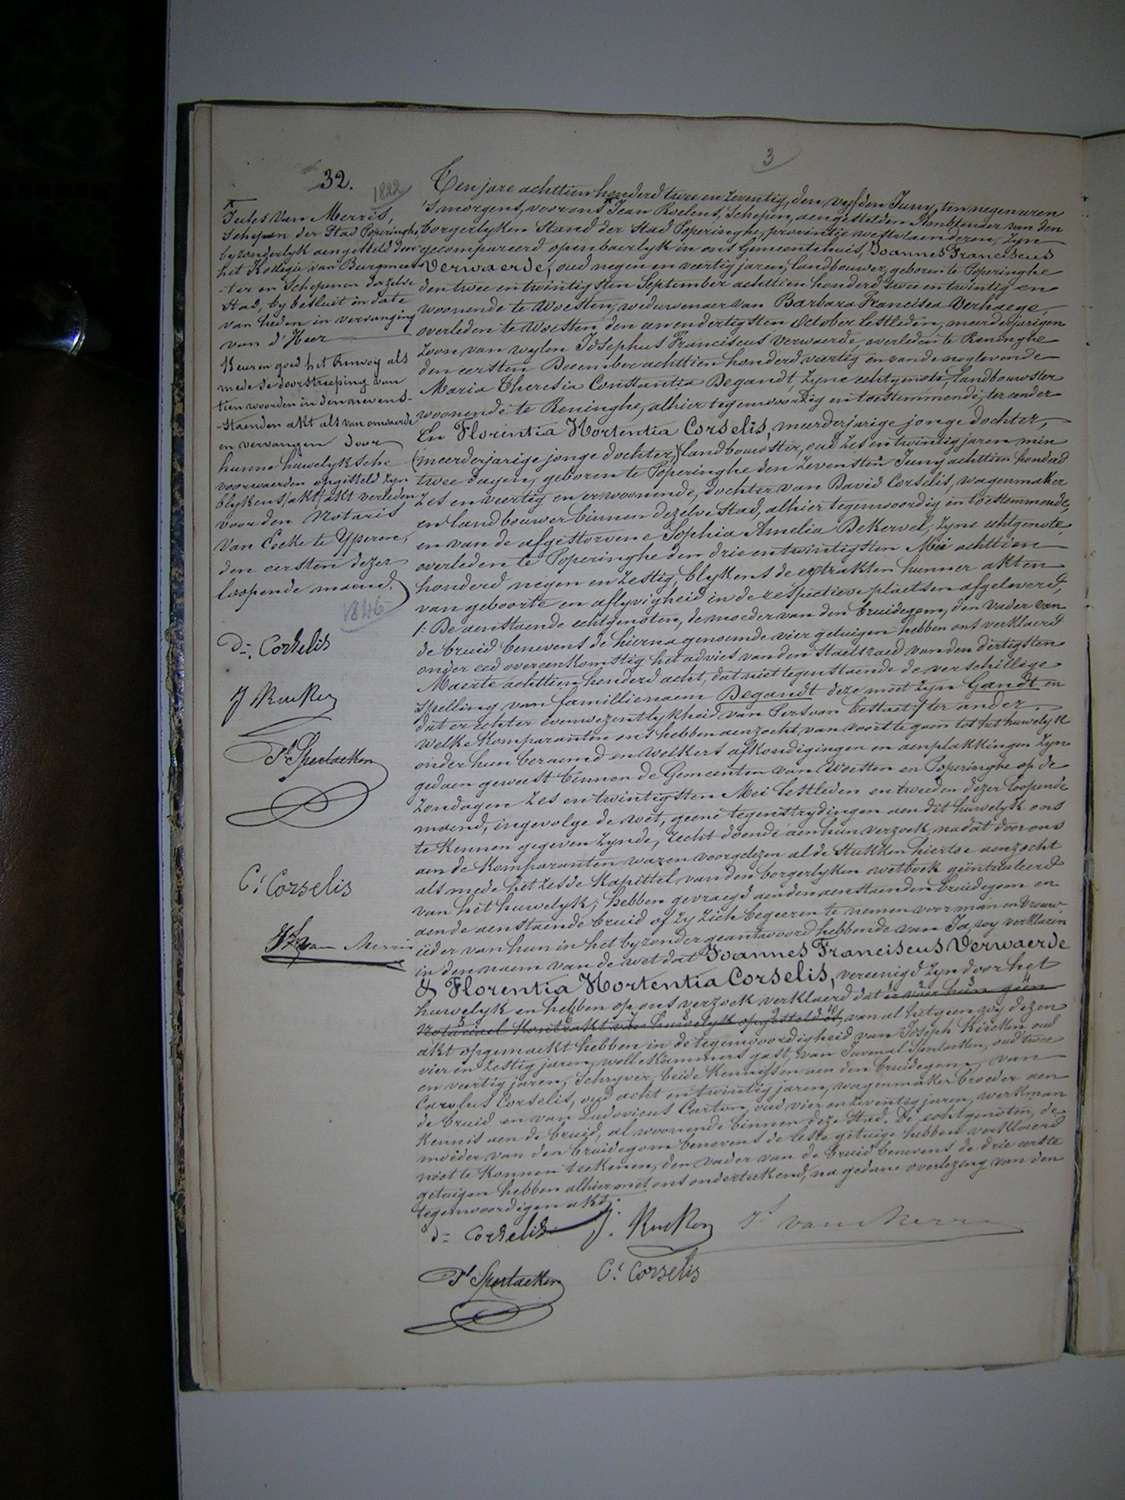 3
32.
1822
Jules Van Merris,
Schepen der Stad Poperinghe,
byzonderlyk aengesteld door
het Kollegie van Burgmees-
-ter en Schepenen dezelve
Stad, by besluit in date
van heden in vervanging
van d'Heer
Keuren goed het Renvooy als
mede de doorstreeping van
tien woorden in den nevens-
-staenden akt als van onwaerde
en vervangen door
hunne huwelyksche
voorwaerden opgesteld zyn
blykens akt verleden
voor den Notaris
Van Eecke te Yperen,
den eersten dezer
loopende maend.
1846
D= Corselis
J Rucken
Pl Sperlaeken
C: Corselis
Js van Merris
Ten jare achttien honderd twee en zeventig, den vyfden Juny, ten negen uren
's morgens, voor ons Jean Roelens, Schepen, aengestelden Ambtenaer van den
borgerlyken Stand der Stad Poperinghe, provintie Westvlaenderen, zyn
gecompareerd openbaerlyk in ons Gemeentehuis, Joannes Franciscus
Verwaerde, oud negen en veertig jaren, landbouwer, geboren te Poperinghe
den twee en twintigsten September achttien honderd twee en twintig en
woonende te Woesten, weduwenaer van Barbara Francisca Verhaege,
overleden te Woesten den een en dertigsten October lestleden, meerderjarigen
zoon van wylen Josephus Franciscus Verwaerde, overleden te Reninghe
den eersten December achttien honderd veertig en van de nog levende
Maria Theresia Constantia Degandt, zyne echtgenote, landbouwster
woonende te Reninghe, alhier tegenwoordig en toestemmende, ter eender
En Florentia Hortentia Corselis, meerderjarige jonge dochter,
(meerderjarige jonge dochter,) landbouwster, oud zes en twintig jaren min
twee dagen, geboren te Poperinghe den zevensten Juny achttien honderd
zes en veertig en er woonende, dochter van David Corselis, wagenmaker
en landbouwer binnen dezelve Stad, alhier tegenwoordig en toestemmende,
en van de afgestorvene Sophia Amelia Dekervel, zyne echtgenote
overleden te Poperinghe den drie en twintigsten Mei achttien
honderd negen en zestig, blykens de extrakten hunner akten
van geboorte en aflyvigheid in de respectieve plaetsen afgeleverd,
/. De aenstaende echtgenoten, de moeder van den bruidegom, den vader van
de bruid benevens de hierna genoemde vier getuigen hebben ons verklaerd
onder eed overeenkomstig het advies van den Staetsraed van den dertigsten
Maerte achttien honderd acht, dat niet tegenstaende de verschillige
spelling van familienaem Degandt deze moet zyn Gandt en
dat er echter evenwezentlykheid van Persoon bestaet, ter ander.
Welke Komparanten ons hebben aenzocht van voort te gaen tot het huwelyk
onder hun beraemd en welkers afkondigingen en aenplakkingen zyn
gedaen geweest binnen de Gemeenten van Woesten en Poperinghe op de
zondagen zes en twintigsten Mei lestleden en tweeden dezer loopende
maend, ingevolge de wet, geene tegenstrydingen aen dit huwelyk ons
te kennen gegeven zynde, recht doende aen hun verzoek, na dat door ons
aen de Komparanten waren voorgelezen al de Stukken hiertoe aenzocht
als mede het zesde Kapittel van den borgerlyken wetboek geintituleerd
van het huwelyk; hebben gevraegd aen den aenstaenden bruidegom en
aen de aenstaende bruid of zy zich begeeren te nemen voor man en vrouw-
ieder van hun in het byzonder geantwoord hebbende van Ja, wy verklaeren
in den naem van de wet dat Joannes Franciscus Verwaerde
& Florentia Hortentia Corselis, vereenigd zyn door het
huwelyk en hebben op ons verzoek verklaerd dat er voor hun geen
Notarieel Kontrakt van huwelyk opgesteld is, van al het geen wy dezen
akt opgemaekt hebben in de tegenwoordigheid van Joseph Rucken oud
vier en zestig jaren, wollekammers gast, van Juvenal Sperlaeken, oud twee
en veertig jaren, Schryver, beide kennissen aen den bruidegom, van
Carolus Corselis, oud acht en twintig jaren, wagenmaker broeder aen
de bruid en van Ludovicus Carton, oud vier en zeventig jaren, werkman
kennis aen de bruid, al woonende binnen deze Stad. De echtgenoten, de
moeder van den bruidegom benevens de leste getuige hebben verklaerd
niet te konnen teekenen, den vader van de bruid benevens de drie eerste
getuigen hebben alhier met ons onderteekend, na gedane overlezing van den
tegenwoordigen akt.
D= Corselis
J. Rucken
Js van Merris
Pl Sperlaeken
C: Corselis